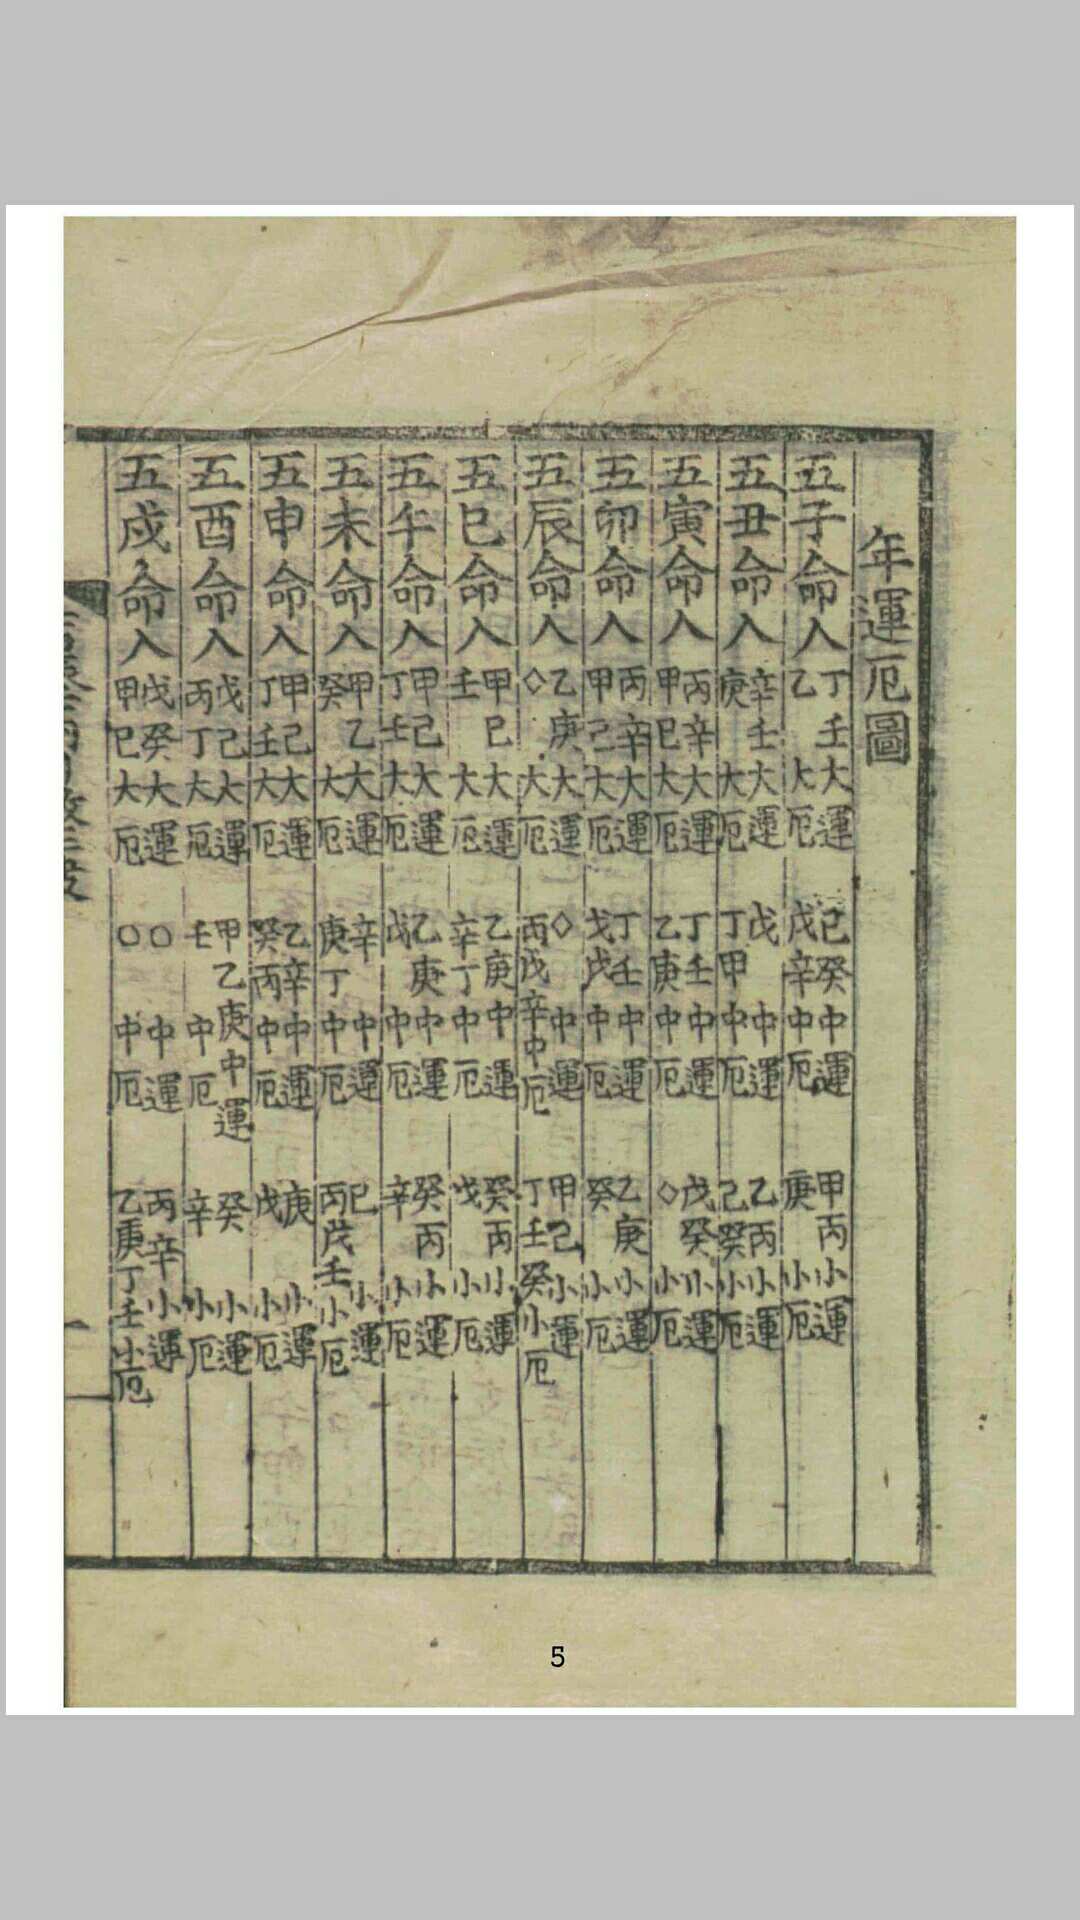 年運厄圖
五子命人 丁壬大運 乙大厄 己癸中運 戊辛中厄 甲丙小運 庚小厄
五丑命人 辛壬大運 庚大厄 戊中運 丁甲中厄 乙丙小運 己癸小厄
五寅命人 丙辛大運 甲巳大厄 丁壬中運 乙庚中厄 戊癸小運 ◇小厄
五卯命人 丙辛大運 甲己大厄 丁壬中運 戊戊中厄 乙庚小運 癸小厄
五辰命人 乙庚大運 ◇大厄 ◇中運 丙戊辛中厄 甲己小運 丁壬癸小厄
五巳命人 甲巳大運 壬大厄 乙庚中運 辛丁中厄 癸丙小運 戊小厄
五午命人 甲己大運 丁壬大厄 乙庚中運 戊中厄 癸丙小運 辛小厄
五未命人 甲乙大運 癸大厄 辛中運 庚丁中厄 巳小運 丙戊壬小厄
五申命人 甲己大運 丁壬大厄 乙辛中運 癸丙中厄 庚小運 戊小厄
五酉命人 戊己大運 丙丁大厄 甲乙庚中運 壬中厄 癸小運 辛小厄
五戌命人 戊癸大運 甲巳大厄 ○中運 ○中厄 丙辛小運 乙庚丁壬小厄
5